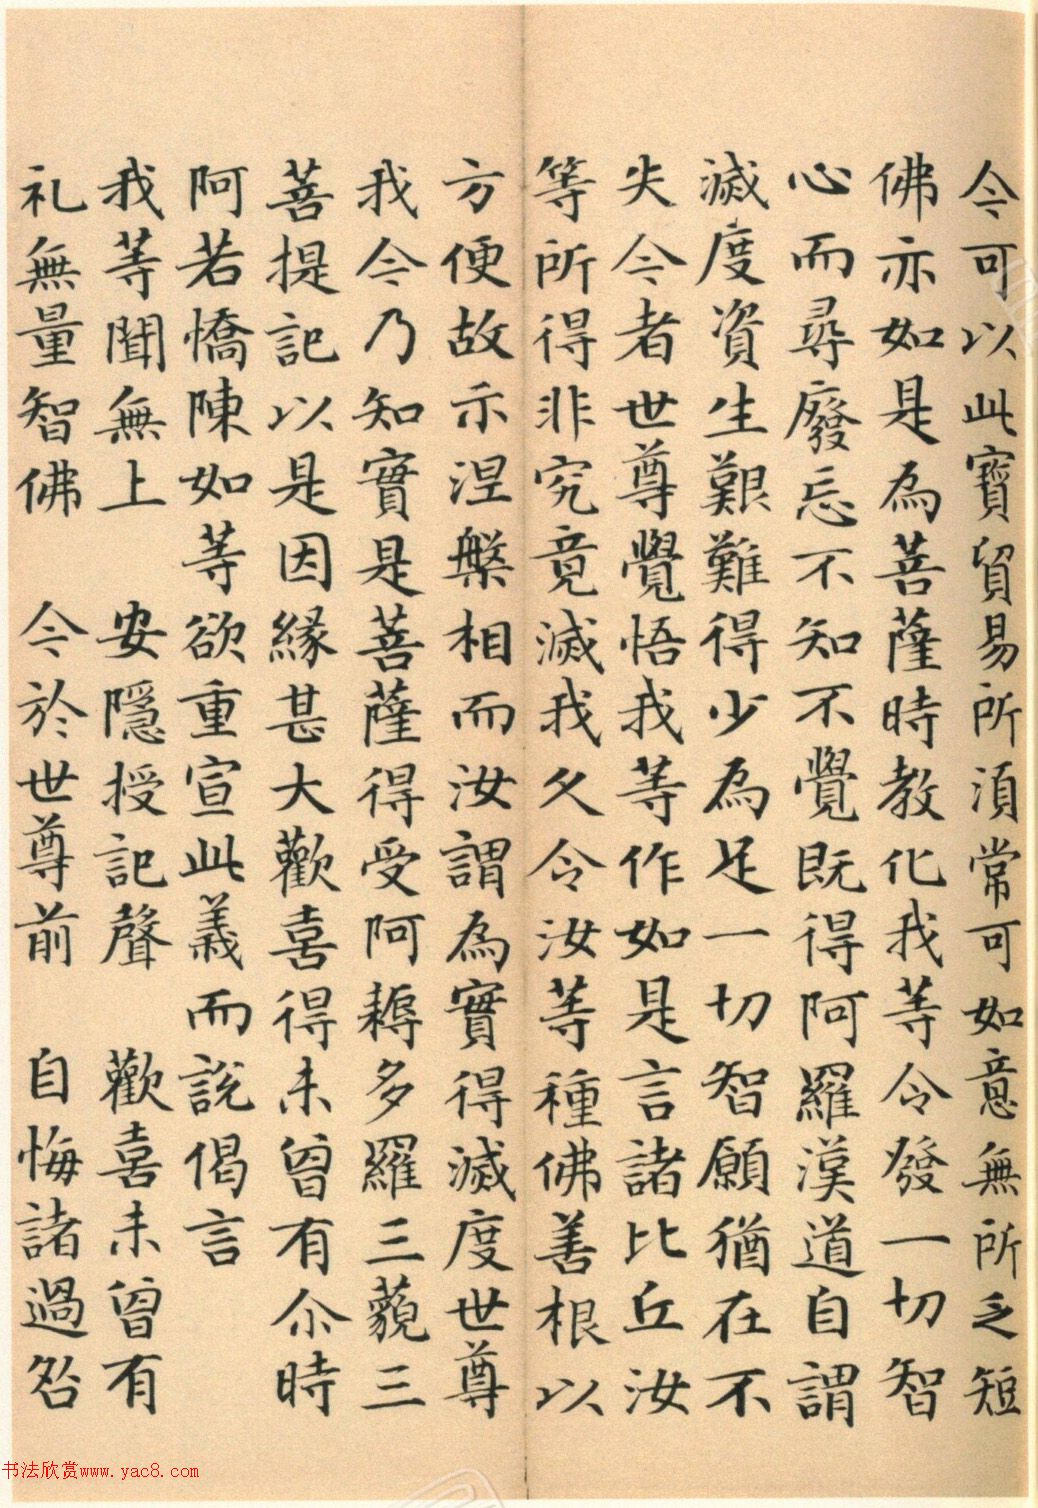 今可以此寶貿易所須常可如意無所乏短
佛亦如是為菩薩時教化我等令發一切智
心而尋廢忘不知不覺既得阿羅漢道自謂
滅度資生艱難得少為足一切智願猶在不
失今者世尊覺悟我等作如是言諸比丘汝
等所得非究竟滅我久令汝等種佛善根以
方便故示涅槃相而汝謂為實得滅度世尊
我今乃知實是菩薩得受阿耨多羅三藐三
菩提記以是因緣甚大歡喜得未曾有尒時
阿若憍陳如等欲重宣此義而說偈言
我等聞無上　安隱授記聲　歡喜未曾有
礼無量智佛　今於世尊前　自悔諸過咎
书法欣赏www.yac8.com